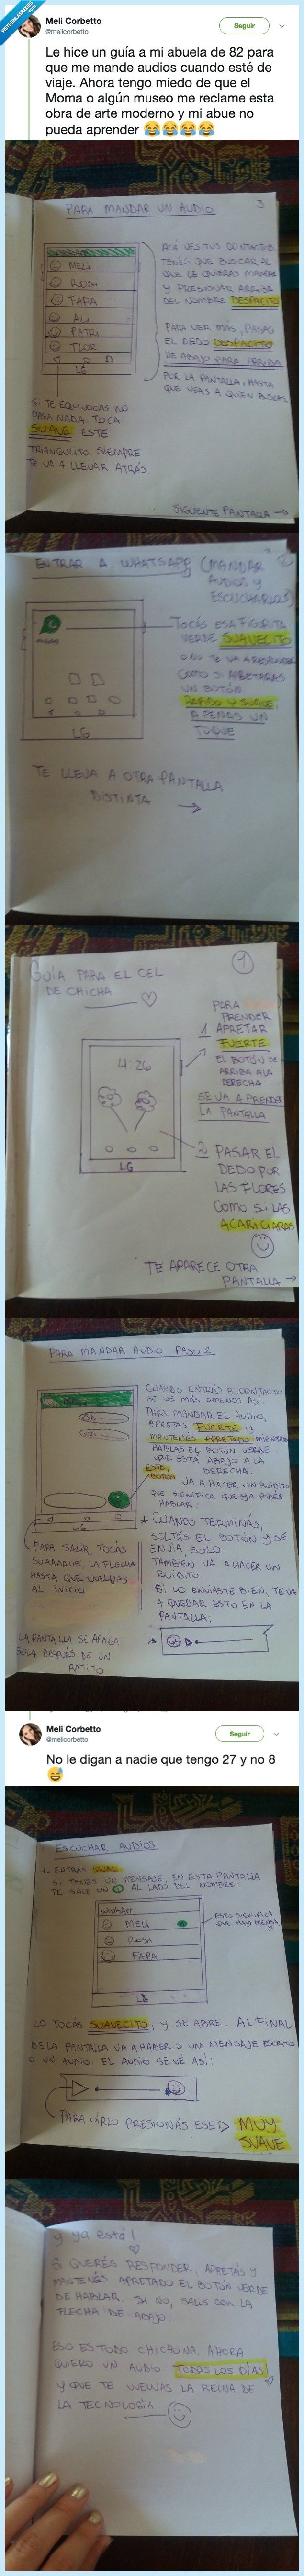 VISTOENLASREDES.COM
Meli Corbetto
@melicorbetto
Seguir
Le hice un guía a mi abuela de 82 para
que me mande audios cuando esté de
viaje. Ahora tengo miedo de que el
Moma o algún museo me reclame esta
obra de arte moderno y mi abue no
pueda aprender 😂😂😂😂
PARA MANDAR UN AUDIO
3
MELI
ROSH
FAFA
ALI
PATRI
FLOR
LG
ACÁ VES TUS CONTACTOS
TENÉS QUE BUSCAR AL
QUE LE QUIERAS MANDAR
Y PRESIONAR ARRIBA
DEL NOMBRE DESPACITO
PARA VER MÁS, PASAS
EL DEDO DESPACITO
DE ABAJO PARA ARRIBA
POR LA PANTALLA, HASTA
QUE VEAS A QUIEN BUSCAS
SI TE EQUIVOCAS NO
PASA NADA. TOCA
SUAVE ESTE
TRIANGULITO. SIEMPRE
TE VA A LLEVAR ATRÁS
SIGUIENTE PANTALLA →
ENTRAR A WHATSAPP (MANDAR
AUDIOS Y
ESCUCHARLOS)
TOCÁS ESA FIGURITA
VERDE SUAVECITO
O NO TE VA A RESPONDER
COMO SI APRETARAS
UN BOTÓN
RAPIDO Y SUAVE,
APENAS UN
TOQUE
LG
TE LLEVA A OTRA PANTALLA
DISTINTA →
GUÍA PARA EL CEL
DE CHICHA
1
4:26
LG
PARA
PRENDER
1 APRETAR
FUERTE
EL BOTÓN DE
ARRIBA A LA
DERECHA
SE VA A PRENDER
LA PANTALLA
2 PASAR EL
DEDO POR
LAS FLORES
COMO SI LAS
ACARICIARAS
TE APARECE OTRA
PANTALLA →
PARA MANDAR AUDIO PASO 2
CUANDO ENTRÁS AL CONTACTO
SE VE MÁS O MENOS ASÍ.
PARA MANDAR EL AUDIO,
APRETAS FUERTE Y
MANTENÉS APRETADO MIENTRAS
HABLAS EL BOTÓN VERDE
QUE ESTÁ ABAJO A LA
DERECHA.
ESTE
BOTON
VA A HACER UN RUIDITO
QUE SIGNIFICA QUE YA PODÉS
HABLAR.
LG
CUANDO TERMINÁS,
SOLTÁS EL BOTÓN Y SE
ENVÍA SOLO.
TAMBIÉN VA A HACER UN
RUIDITO.
SI LO ENVIASTE BIEN, TE VA
A QUEDAR ESTO EN LA
PANTALLA:
PARA SALIR, TOCÁS
SUAAAAVE, LA FLECHA
HASTA QUE VUELVAS
AL INICIO
LA PANTALLA SE APAGA
SOLA DESPUÉS DE UN
RATITO
Meli Corbetto
@melicorbetto
Seguir
No le digan a nadie que tengo 27 y no 8
😅
ESCUCHAR AUDIOS
ENTRÁS IGUAL
SI TENES UN MENSAJE, EN ESTA PANTALLA
TE SALE UN AL LADO DEL NOMBRE.
WhatsApp
MELI
ROSH
FAFA
LG
ESTO SIGNIFICA
QUE HAY MENSAJE
LO TOCÁS SUAVECITO, Y SE ABRE. AL FINAL
DE LA PANTALLA VA A HABER O UN MENSAJE ESCRITO
O UN AUDIO. EL AUDIO SE VE ASÍ:
PARA OÍRLO PRESIONÁS ESE ▷ MUY
SUAVE
y ya está!
SI QUERÉS RESPONDER, APRETÁS Y
MANTENÉS APRETADO EL BOTÓN VERDE
DE HABLAR. SI NO, SALÍS CON LA
FLECHA DE ABAJO.
ESO ES TODO CHICHONA. AHORA
QUIERO UN AUDIO TODOS LOS DÍAS
Y QUE TE VUELVAS LA REINA DE
LA TECNOLOGÍA